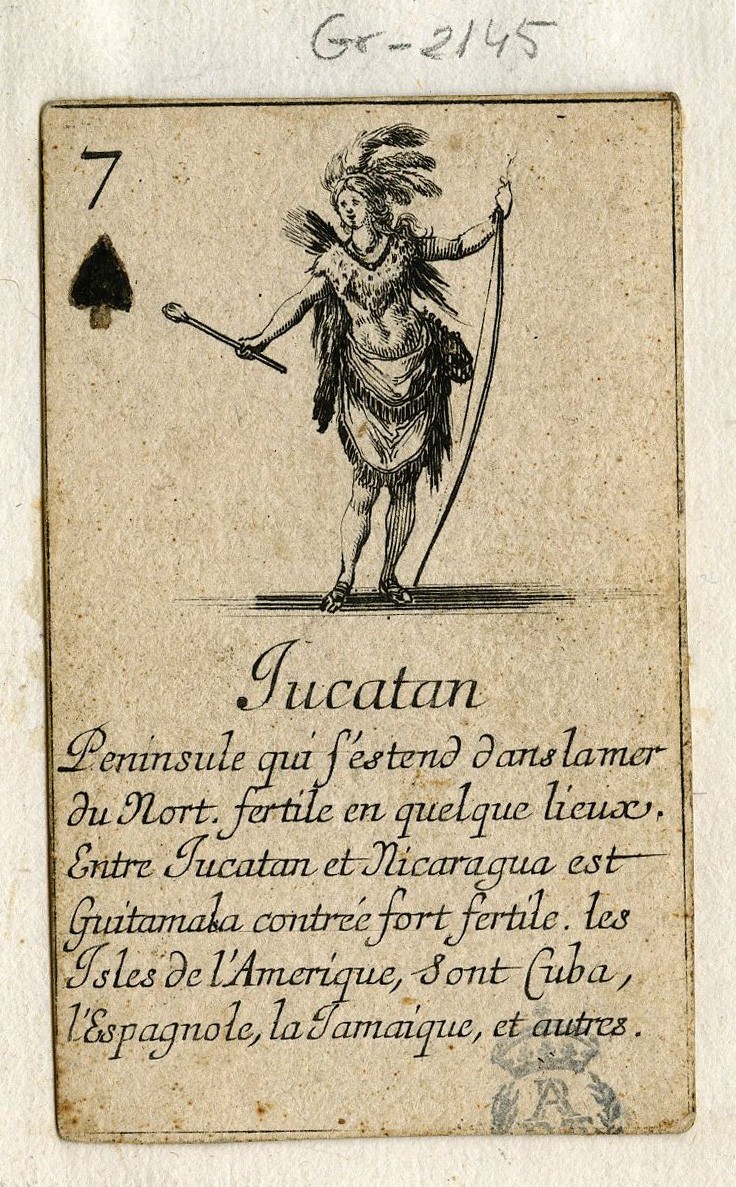 Gr-2145
7
Jucatan
Peninsule qui s'éstend dans la mer
du Nort. fertile en quelque lieux.
Entre Jucatan et Nicaragua est
Guitamala contrée fort fertile. les
Isles de l'Amerique, sont Cuba,
l'Espagnole, la Jamaique, et autres.